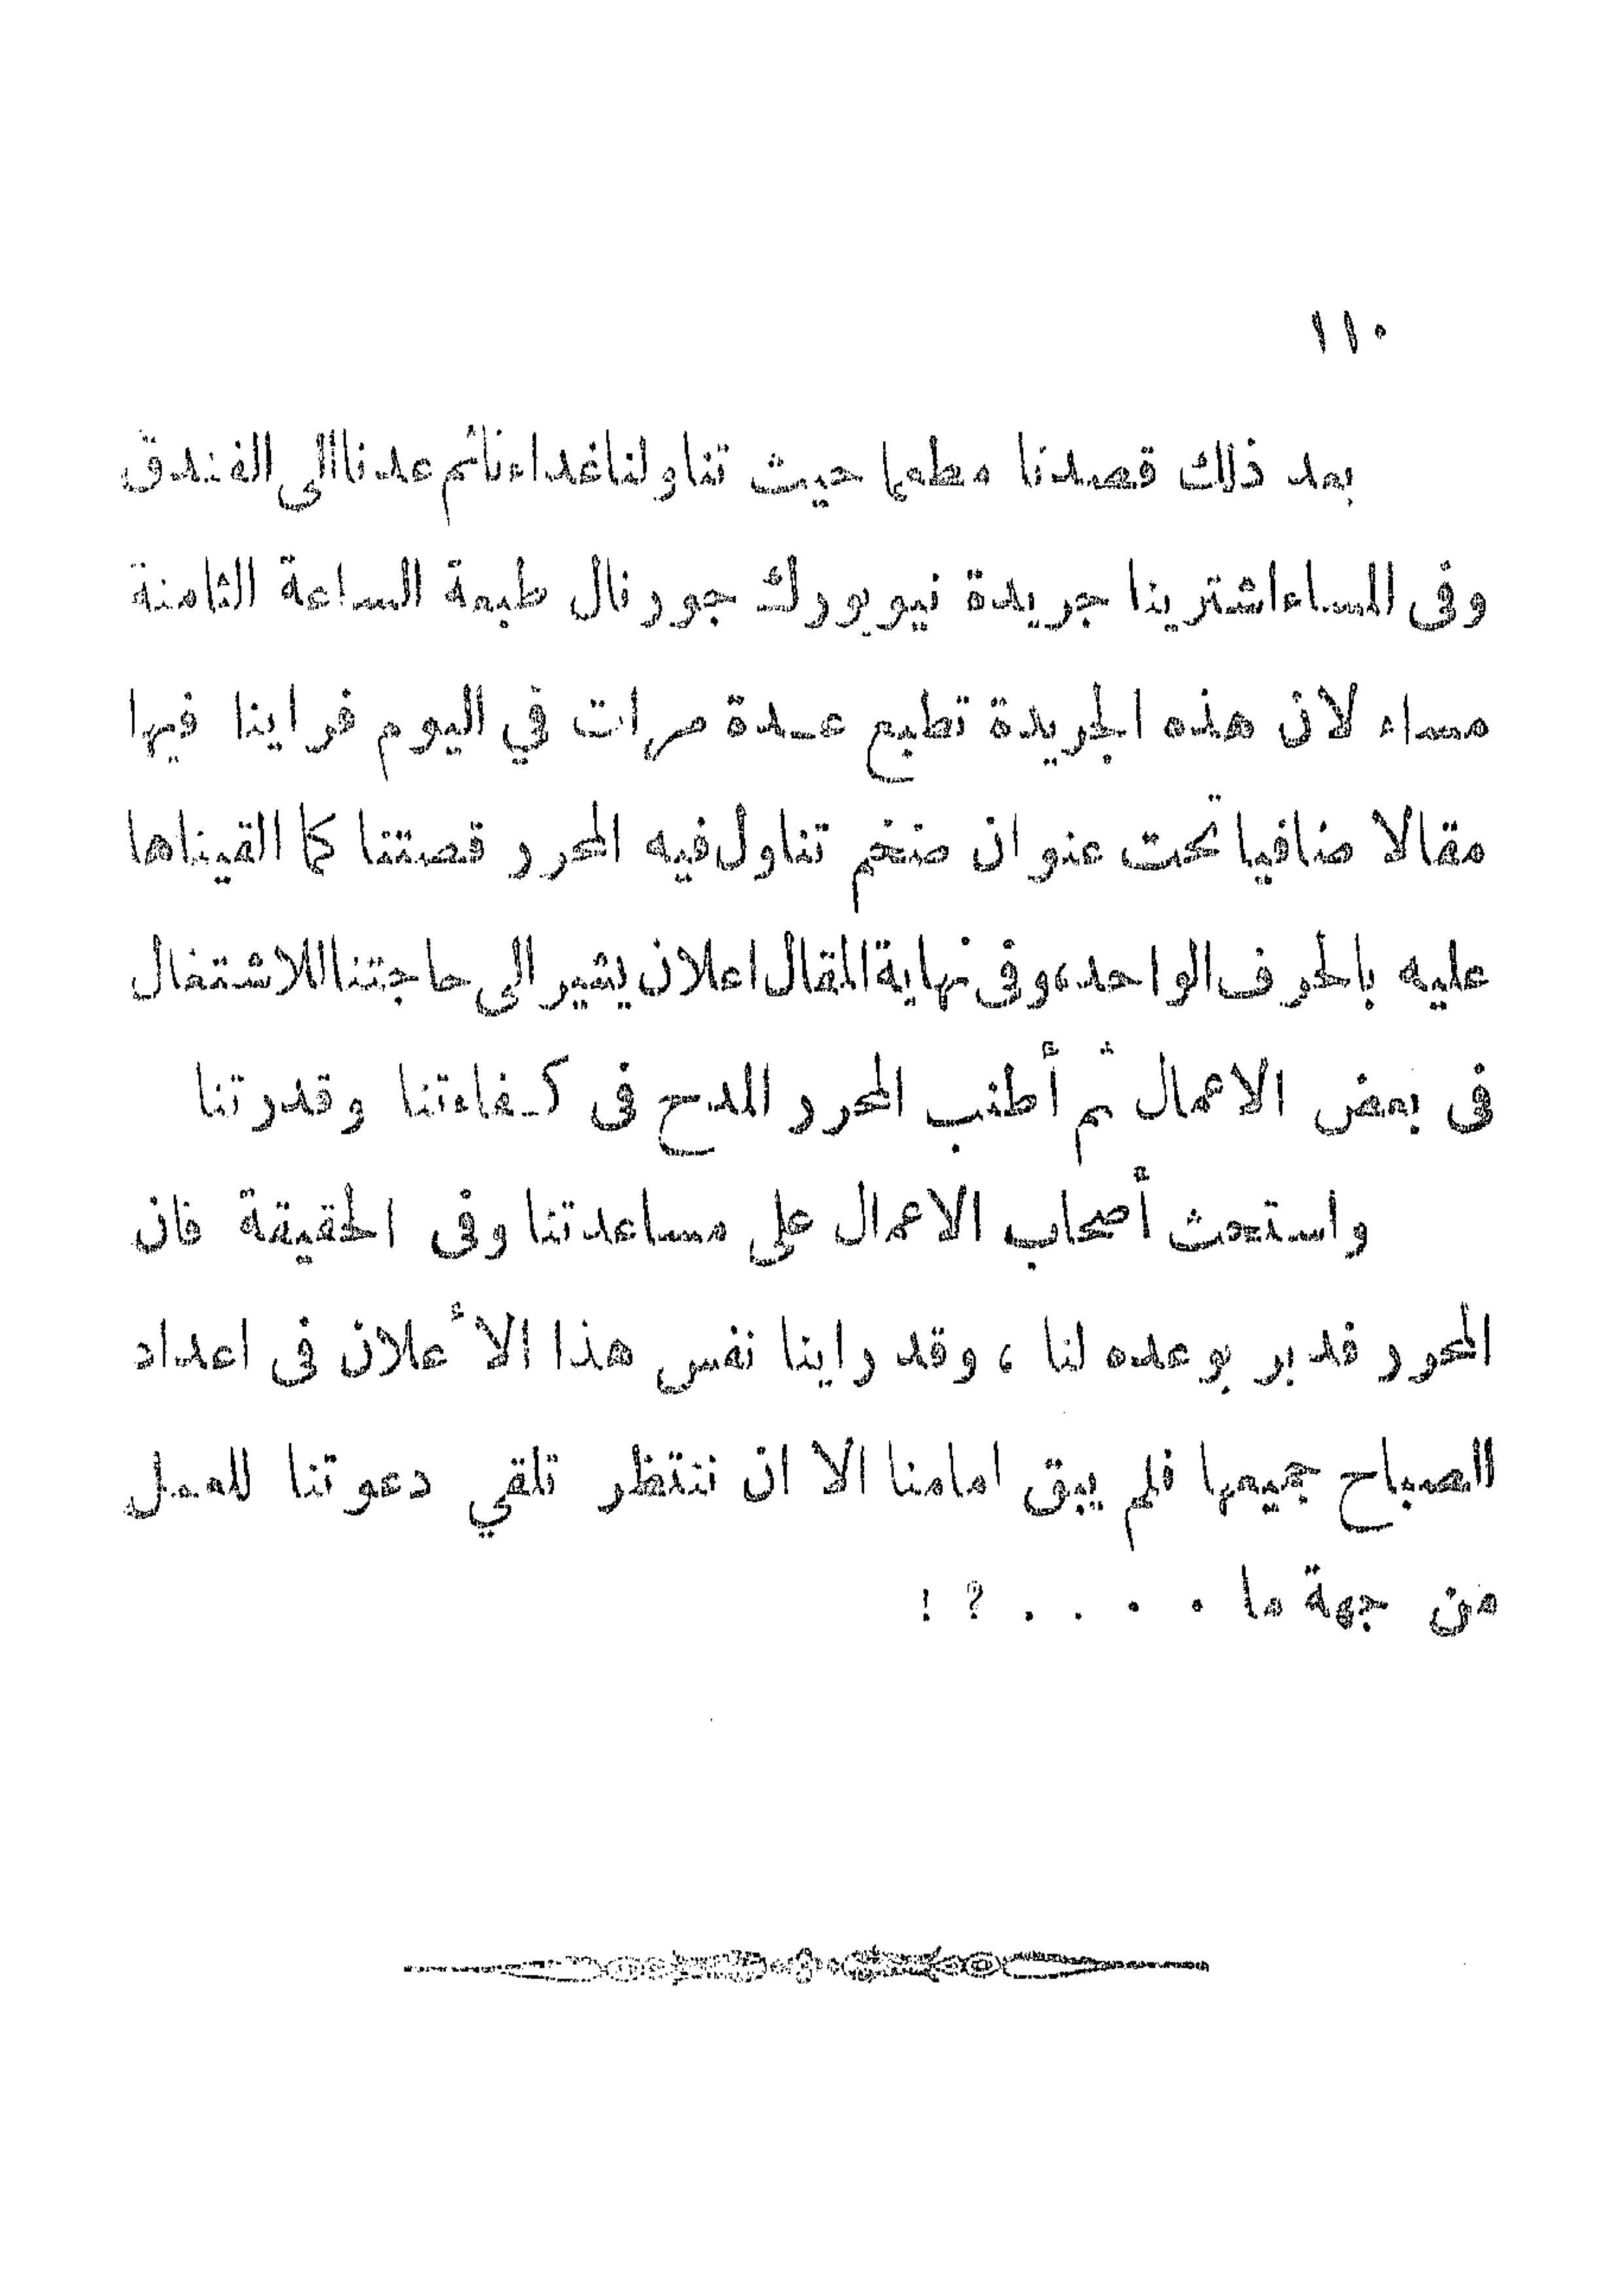 ١١٠
بعد ذلك قصدنا مطعما حيث تناولنا غداءنا ثم عدنا الى الفندق
وفى المساء اشترينا جريدة نيويورك جورنال طبعة الساعة الثامنة
مساء لان هذه الجريدة تطبع عـدة مرات في اليوم فراينا فيها
مقالا ضافيا تحت عنوان ضخم تناول فيه المحرر قصتنا كما القيناها
عليه بالحرف الواحد، وفى نهاية المقال اعلان يشير الى حاجتنا للاشتغال
فى بعض الاعمال ثم أطنب المحرر المدح فى كـفاءتنا وقدرتنا
واستحث أصحاب الاعمال على مساعدتنا وفى الحقيقة فان
المحرر قد بر بوعده لنا ، وقد راينا نفس هذا الأعلان فى اعداد
الصباح جميعها فلم يبق امامنا الا ان ننتظر تلقي دعوتنا للعمل
من جهة ما . . . . . ? !